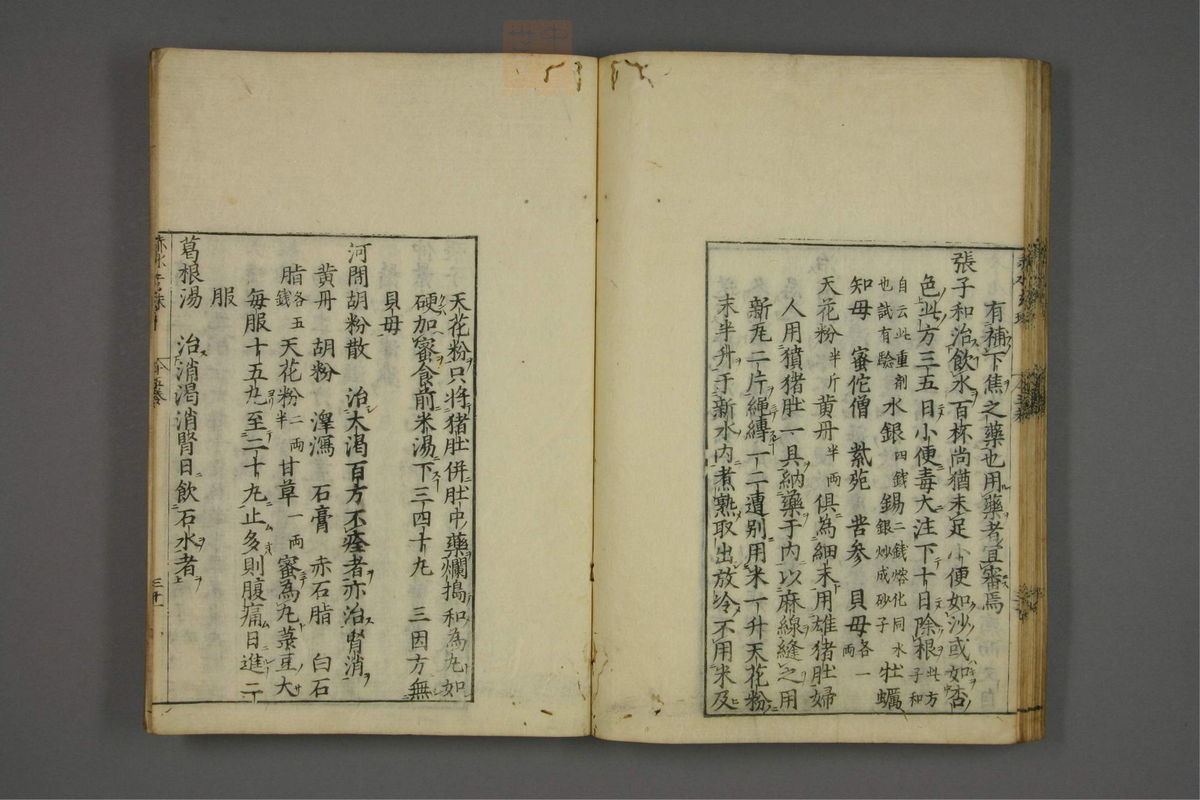 有補下焦之藥也用藥者宜審焉
張子和治飲水百杯尚猶未足小便如沙或如杏
色此方三五日小便毒大注下十日除根此方子和
自云此重劑也試有驗水銀四錢錫二錢熔化同水銀炒成砂子牡蠣
知母　蜜佗僧　紫苑　苦參　貝母各一兩
天花粉半斤黃丹半兩俱為細末用雄猪肚婦
人用獖猪肚一具納藥于內以麻線縫之用
新瓦二片繩縛一二遭别用米一升天花粉
末半升于新水内煮熟取出放冷不用米及
天花粉只将猪肚併肚中藥爛搗和為丸如
硬加蜜食前米湯下三四十丸　三因方無
貝母
河間胡粉散　治大渴百方不痊者亦治腎消
黄丹　胡粉　澤瀉　石膏　赤石脂　白石
脂各五錢天花粉二兩半甘草一兩蜜為丸菉豆大
每服十五丸至二十丸止多則腹痛日進二
服
葛根湯　治消渴消腎日飲石水者